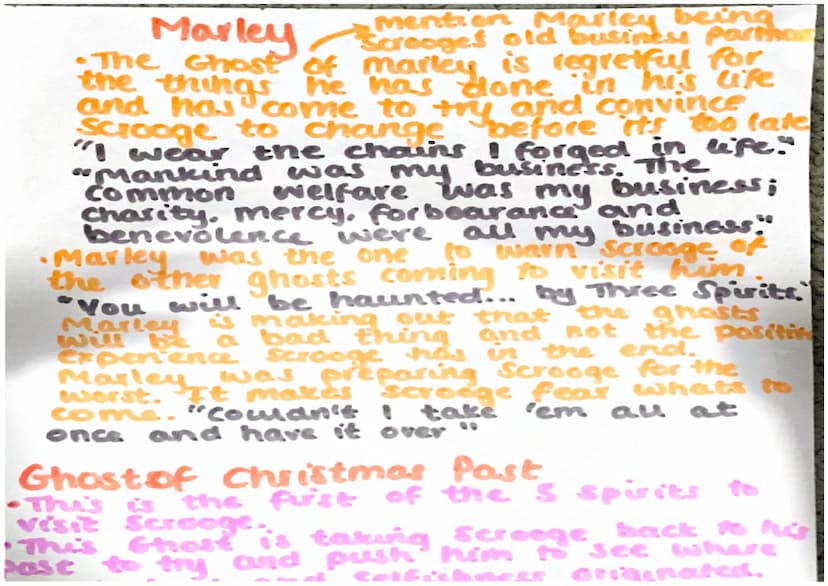 Marley
mention Marley being
Scrooges old business
• The Ghost of Marley is regretful for
the things he has done in his life
and has come to try and convince
Scrooge to change before its too late
"I wear the chains I forged in life."
"Mankind was my business. The
common welfare was my business;
charity, mercy, forbearance and
benevolence were all my business."
• Marley was the one to warn Scrooge of
the other ghosts coming to visit him.
"You will be haunted... by Three Spirits."
Marley is making out that the ghosts
will be a bad thing and not the positive
experience Scrooge has in the end.
Marley was preparing Scrooge for the
worst. It makes Scrooge fear whats to
come. "Couldn't I take 'em all at
once and have it over"
Ghost of Christmas Past
• This is the first of the spirits to
visit Scrooge.
• This Ghost is taking Scrooge back to his
past to try and push him to see where
and selfishness originated.